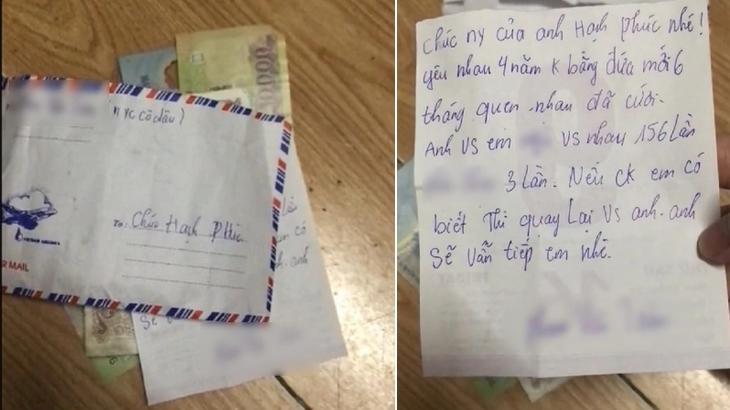 NYC cô dâu)
To: Chúc Hạnh Phúc
R MAIL
Lần
em có
h. anh
sẽ
Chúc ny của anh Hạnh phúc nhé!
yêu nhau 4 năm k bằng đứa mới 6
tháng quen nhau đã cưới.
Anh vs em vs nhau 156 Lần
3 Lần. Nếu ck em có
biết Thì quay Lại vs anh. anh
Sẽ vẫn tiếp em nhé.